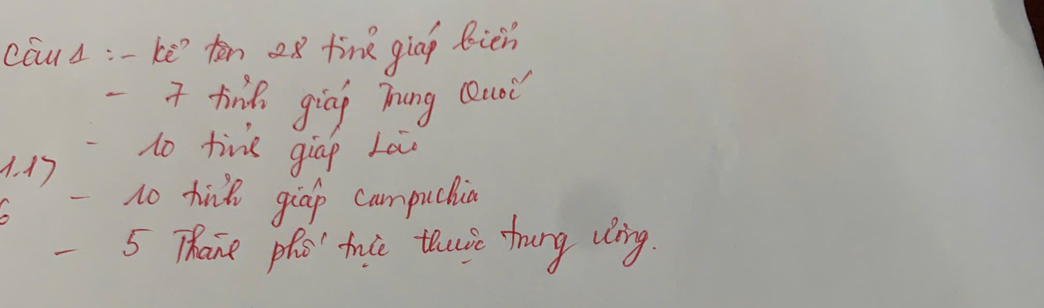 Câu 1 : - kể tên 28 tỉnh giáp biển
- 7 tỉnh giáp Trung Quốc
- 10 tỉnh giáp Lào
1.17
- 10 tỉnh giáp campuchia
6
- 5 Thành phố trực thuộc trung ương.